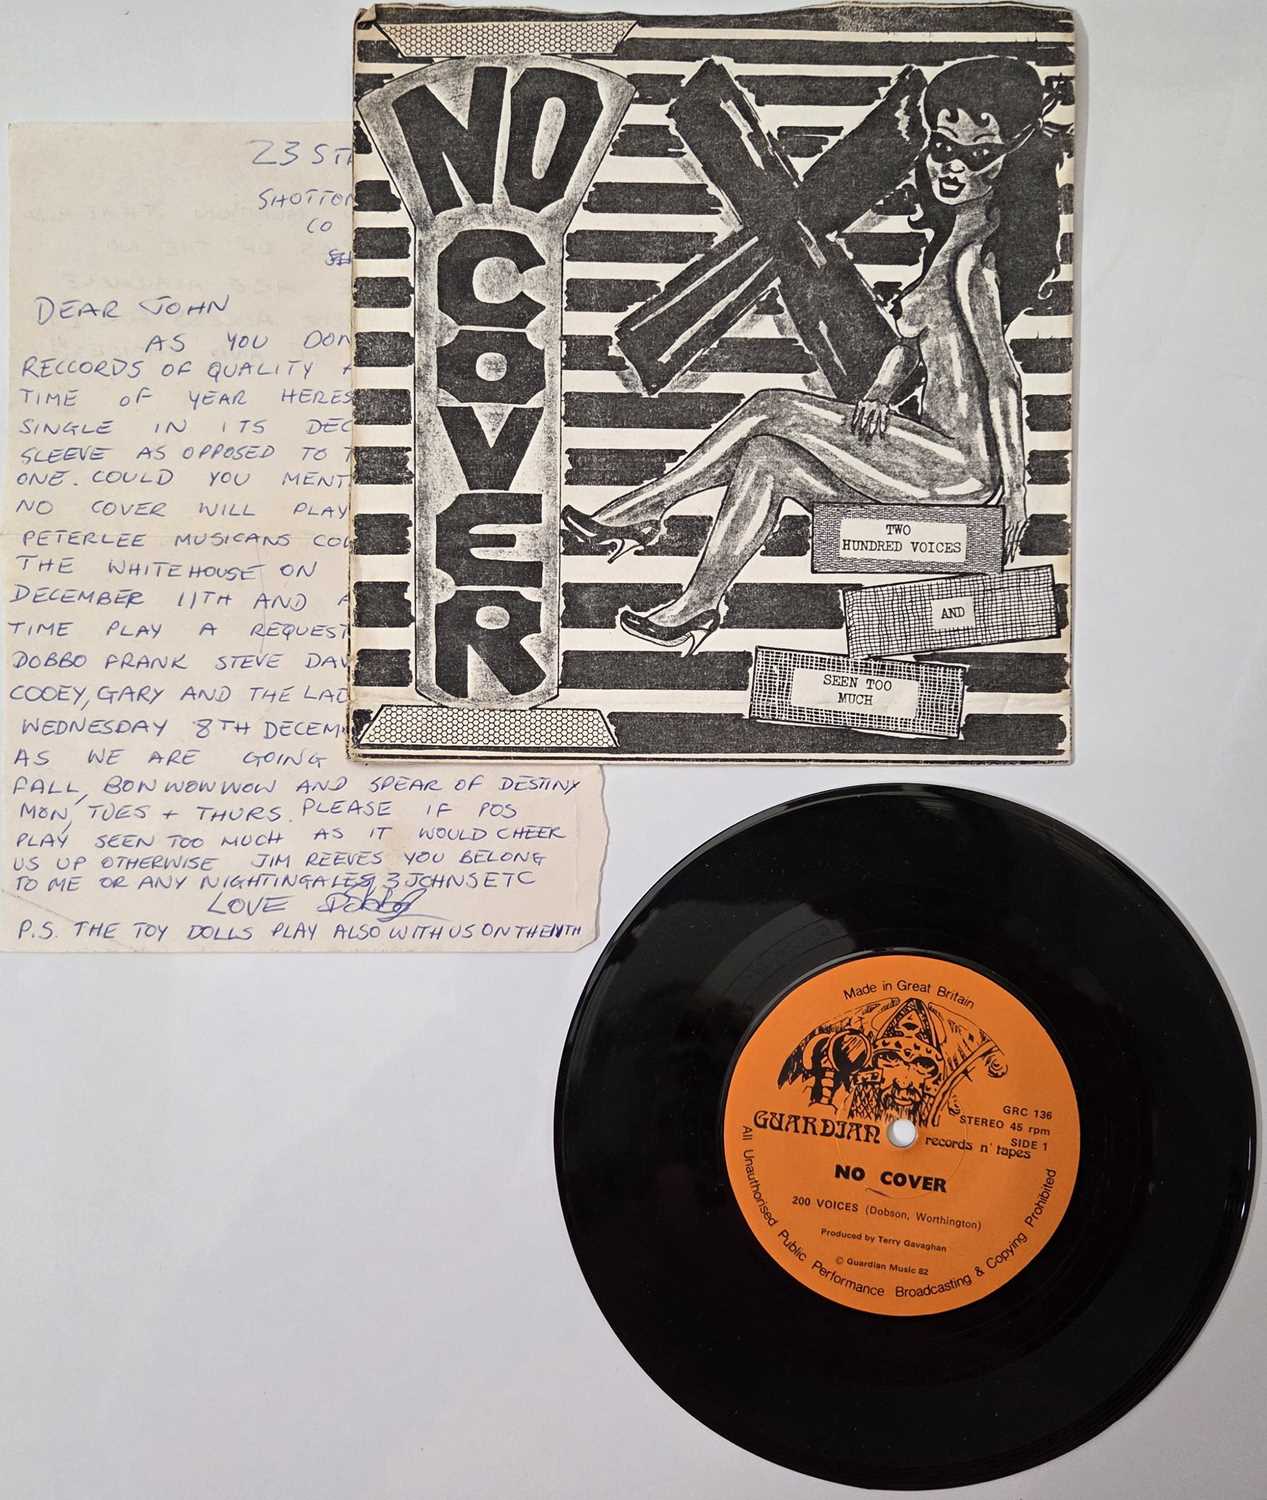 23
SHOTTON
CO
DEAR JOHN
AS YOU DON
RECCORDS OF QUALITY
TIME OF YEAR HERES
SINGLE IN ITS DEC
SLEEVE AS OPPOSED TO
ONE. COULD YOU MENT
NO COVER WILL PLAY
PETERLEE MUSICANS COL
THE WHITEHOUSE ON
DECEMBER 11TH AND A
TIME PLAY A REQUEST
DOBBO FRANK STEVE DAV
COOEY, GARY AND THE LAD
WEDNESDAY 8TH DECEM
AS WE ARE GOING
FALL, BON WOW WOW AND SPEAR OF DESTINY
MON, TUES + THURS. PLEASE IF POS
PLAY SEEN TOO MUCH AS IT WOULD CHEER
US UP OTHERWISE JIM REEVES YOU BELONG
TO ME OR ANY NIGHTINGALES, 3 JOHNS ETC
LOVE Dobbo
P.S. THE TOY DOLLS PLAY ALSO WITH US ON THE 11TH
NO
COVER
X
TWO
HUNDRED VOICES
AND
SEEN TOO
MUCH
Made in Great Britain
GUARDIAN records n' tapes
GRC 136
STEREO 45 rpm
SIDE 1
NO COVER
200 VOICES (Dobson, Worthington)
Produced by Terry Gavaghan
© Guardian Music 82
All Unauthorised Public Performance Broadcasting & Copying Prohibited